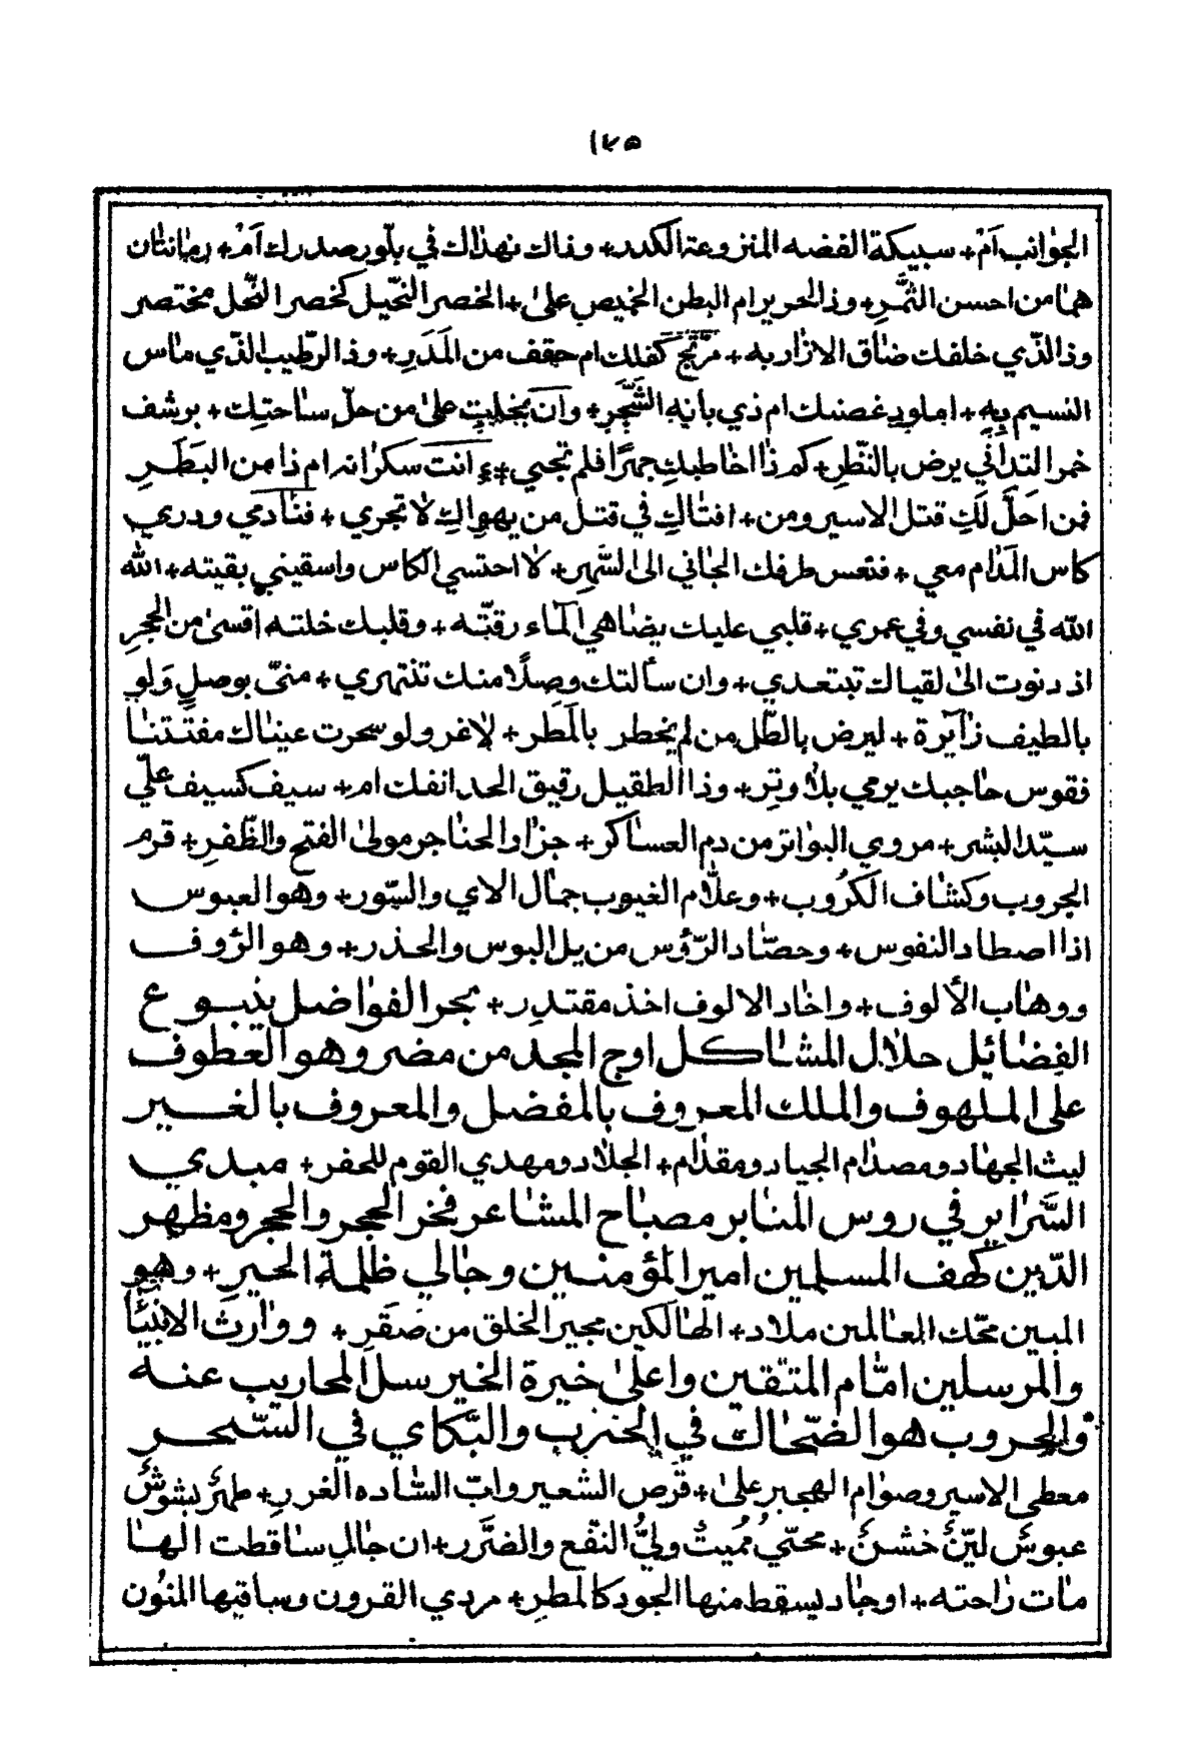 ١٧٥
الجوانب اَمْ+ سبيكة الفضه المنزوعة الكدر+ وذاك نهذاك في بلّور صدرك اَمْ+ رمانتان
هما من احسن الثَّمَرِ+ وذالحرير ام البطن الخميص على+ الخصر النّحيل كخصر النّحل مختصر
وذالذّي خلفك ضاق الازار به+ مرتّج كفلك ام حقف من المَدَرِ+ وذالرّطيب الذّي ماس
النسيم بِهِ+ املود غصنك ام ذي بانه الشَّجَرِ+ وان بخلتِ على من حلّ ساحتِك+ برشف
خمر التداني يرض بالنّظرِ+ كم ذا اخاطبكِ جهرًا فلم تجبي+ء انت سكرانه ام ذا من البَطَرِ
فمن احَلَّ لَكِ قتل الاسير ومن+ افتاكِ في قتل من يهواكِ لا تجري+ فنادَمي ودري
كاس المَدام معي+ فنعس طرفك الجاني الى السَّمِرِ+ لا احتسي الكاس واسقيني بقيته+ الله
الله في نفسي وفي عمري+ قلبي عليك يضاهي الماء رقّته+ وقلبك خلته اقسى من الحجرِ
اذ دنوت الى لقياك تبتعدي+ وان سألتك وصلًا منك تنتهري+ منّي بوصلٍ وَلو
بالطيف زايرة+ ليرض بالطّل من لم يخطر بالمَطر+ لاغرو لو سحرت عيناك مفتتنا
فقوس حاجبك يرمي بلا وترِ+ وذا الطقيل رقيق الحد انفك ام+ سيف كسيف عليّ
سيّد البشر+ مروي البواتر من دم العساكر+ جزاوا لحناجر مولى الفتح والظّفرِ+ قرم
الحروب وكشاف الكُروب+ وعلّام الغيوب جمال الاي والسّور+ وهو العبوس
اذا اصطاد النفوس+ وحصّاد الرّؤس مزيل البوس والحذر+ وهو الرّوف
ووهاب الألوف+ واخاد الالوف اخذ مقتدِر+ بحر الفواضل ينبوع
الفضائل حلال المشاكل اوج المجد من مضر وهو العطوف
على الملهوف والملك المعروف بالمفضل والمعروف بالغير
ليث الجهاد ومصدام الجياد ومقدام+ الجلاد ومهدي القوم للحفر+ مبدي
السَّراير في روس المنابر مصباح المشاعر فخر الحجر والحجر ومظهر
الدّين كهف المسلمين امير المؤمنين وجالي ظلمة الحيرِ+ وهو
المبين محّك العالمين ملاد+ الهالكين مجير الخلق من صَقَرِ+ ووارث الانبيآ
والمرسلين امّام المتّقين واعلى خيرة الخير سل المحاريب عنه
والحروب هو الضّحاك في الحرب والبّكاي في السّحر
معطي الاسير وصوام الهجير على+ قُرص الشعير وابّ السّاده الغررِ+ طهرٌ بشوشٌ
عبوسٌ ليّنٌ خشنٌ+ محيّيٌ مُميتٌ وليُّ النّفع والضَّرر+ ان جالِ ساقطت الها
مات راحته+ اوجاد يسقط منها الجود كالمطرِ+ مردي القرون وساقيها المنُون